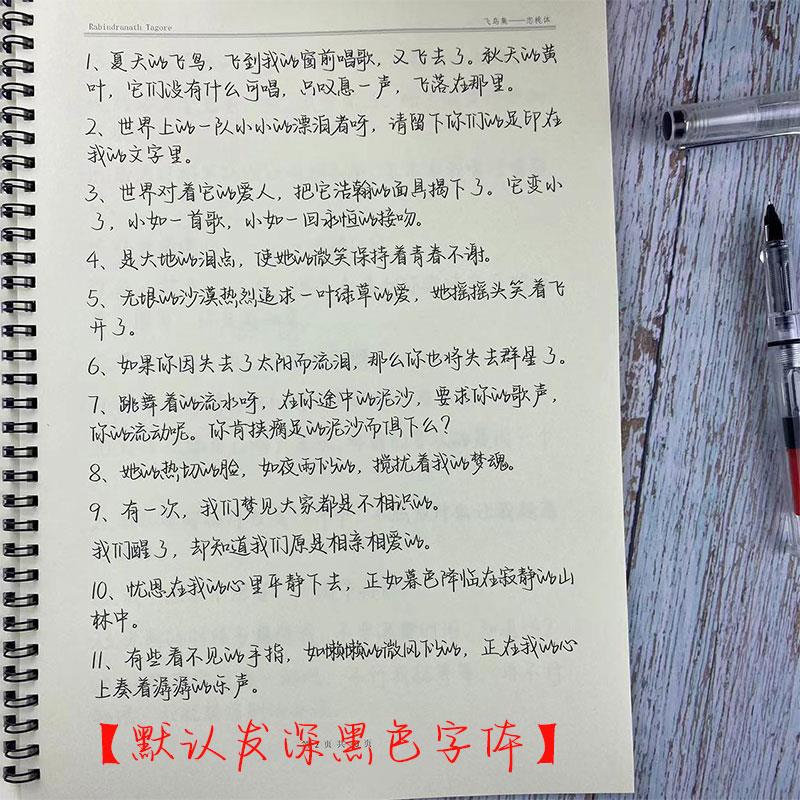 Rabindranath Tagore
飞鸟集——恋桃体
1、夏天的飞鸟，飞到我的窗前唱歌，又飞去了。秋天的黄
叶，它们没有什么可唱，只叹息一声，飞落在那里。
2、世界上的一队小小的漂泊者呀，请留下你们的足印在
我的文字里。
3、世界对着它的爱人，把它浩翰的面具揭下了。它变小
了，小如一首歌，小如一回永恒的接吻。
4、是大地的泪点，使她的微笑保持着青春不谢。
5、无垠的沙漠热烈追求一叶绿草的爱，她摇摇头笑着飞
开了。
6、如果你因失去了太阳而流泪，那么你也将失去群星了。
7、跳舞着的流水呀，在你途中的泥沙，要求你的歌声，
你的流动呢。你肯挟瘸足的泥沙而俱下么？
8、她的热切的脸，如夜雨似的，搅扰着我的梦魂。
9、有一次，我们梦见大家都是不相识的。
我们醒了，却知道我们原是相亲相爱的。
10、忧思在我的心里平静下去，正如暮色降临在寂静的山
林中。
11、有些看不见的手指，如懒懒的微风似的，正在我的心
上奏着潺潺的乐声。
【默认发深黑色字体】